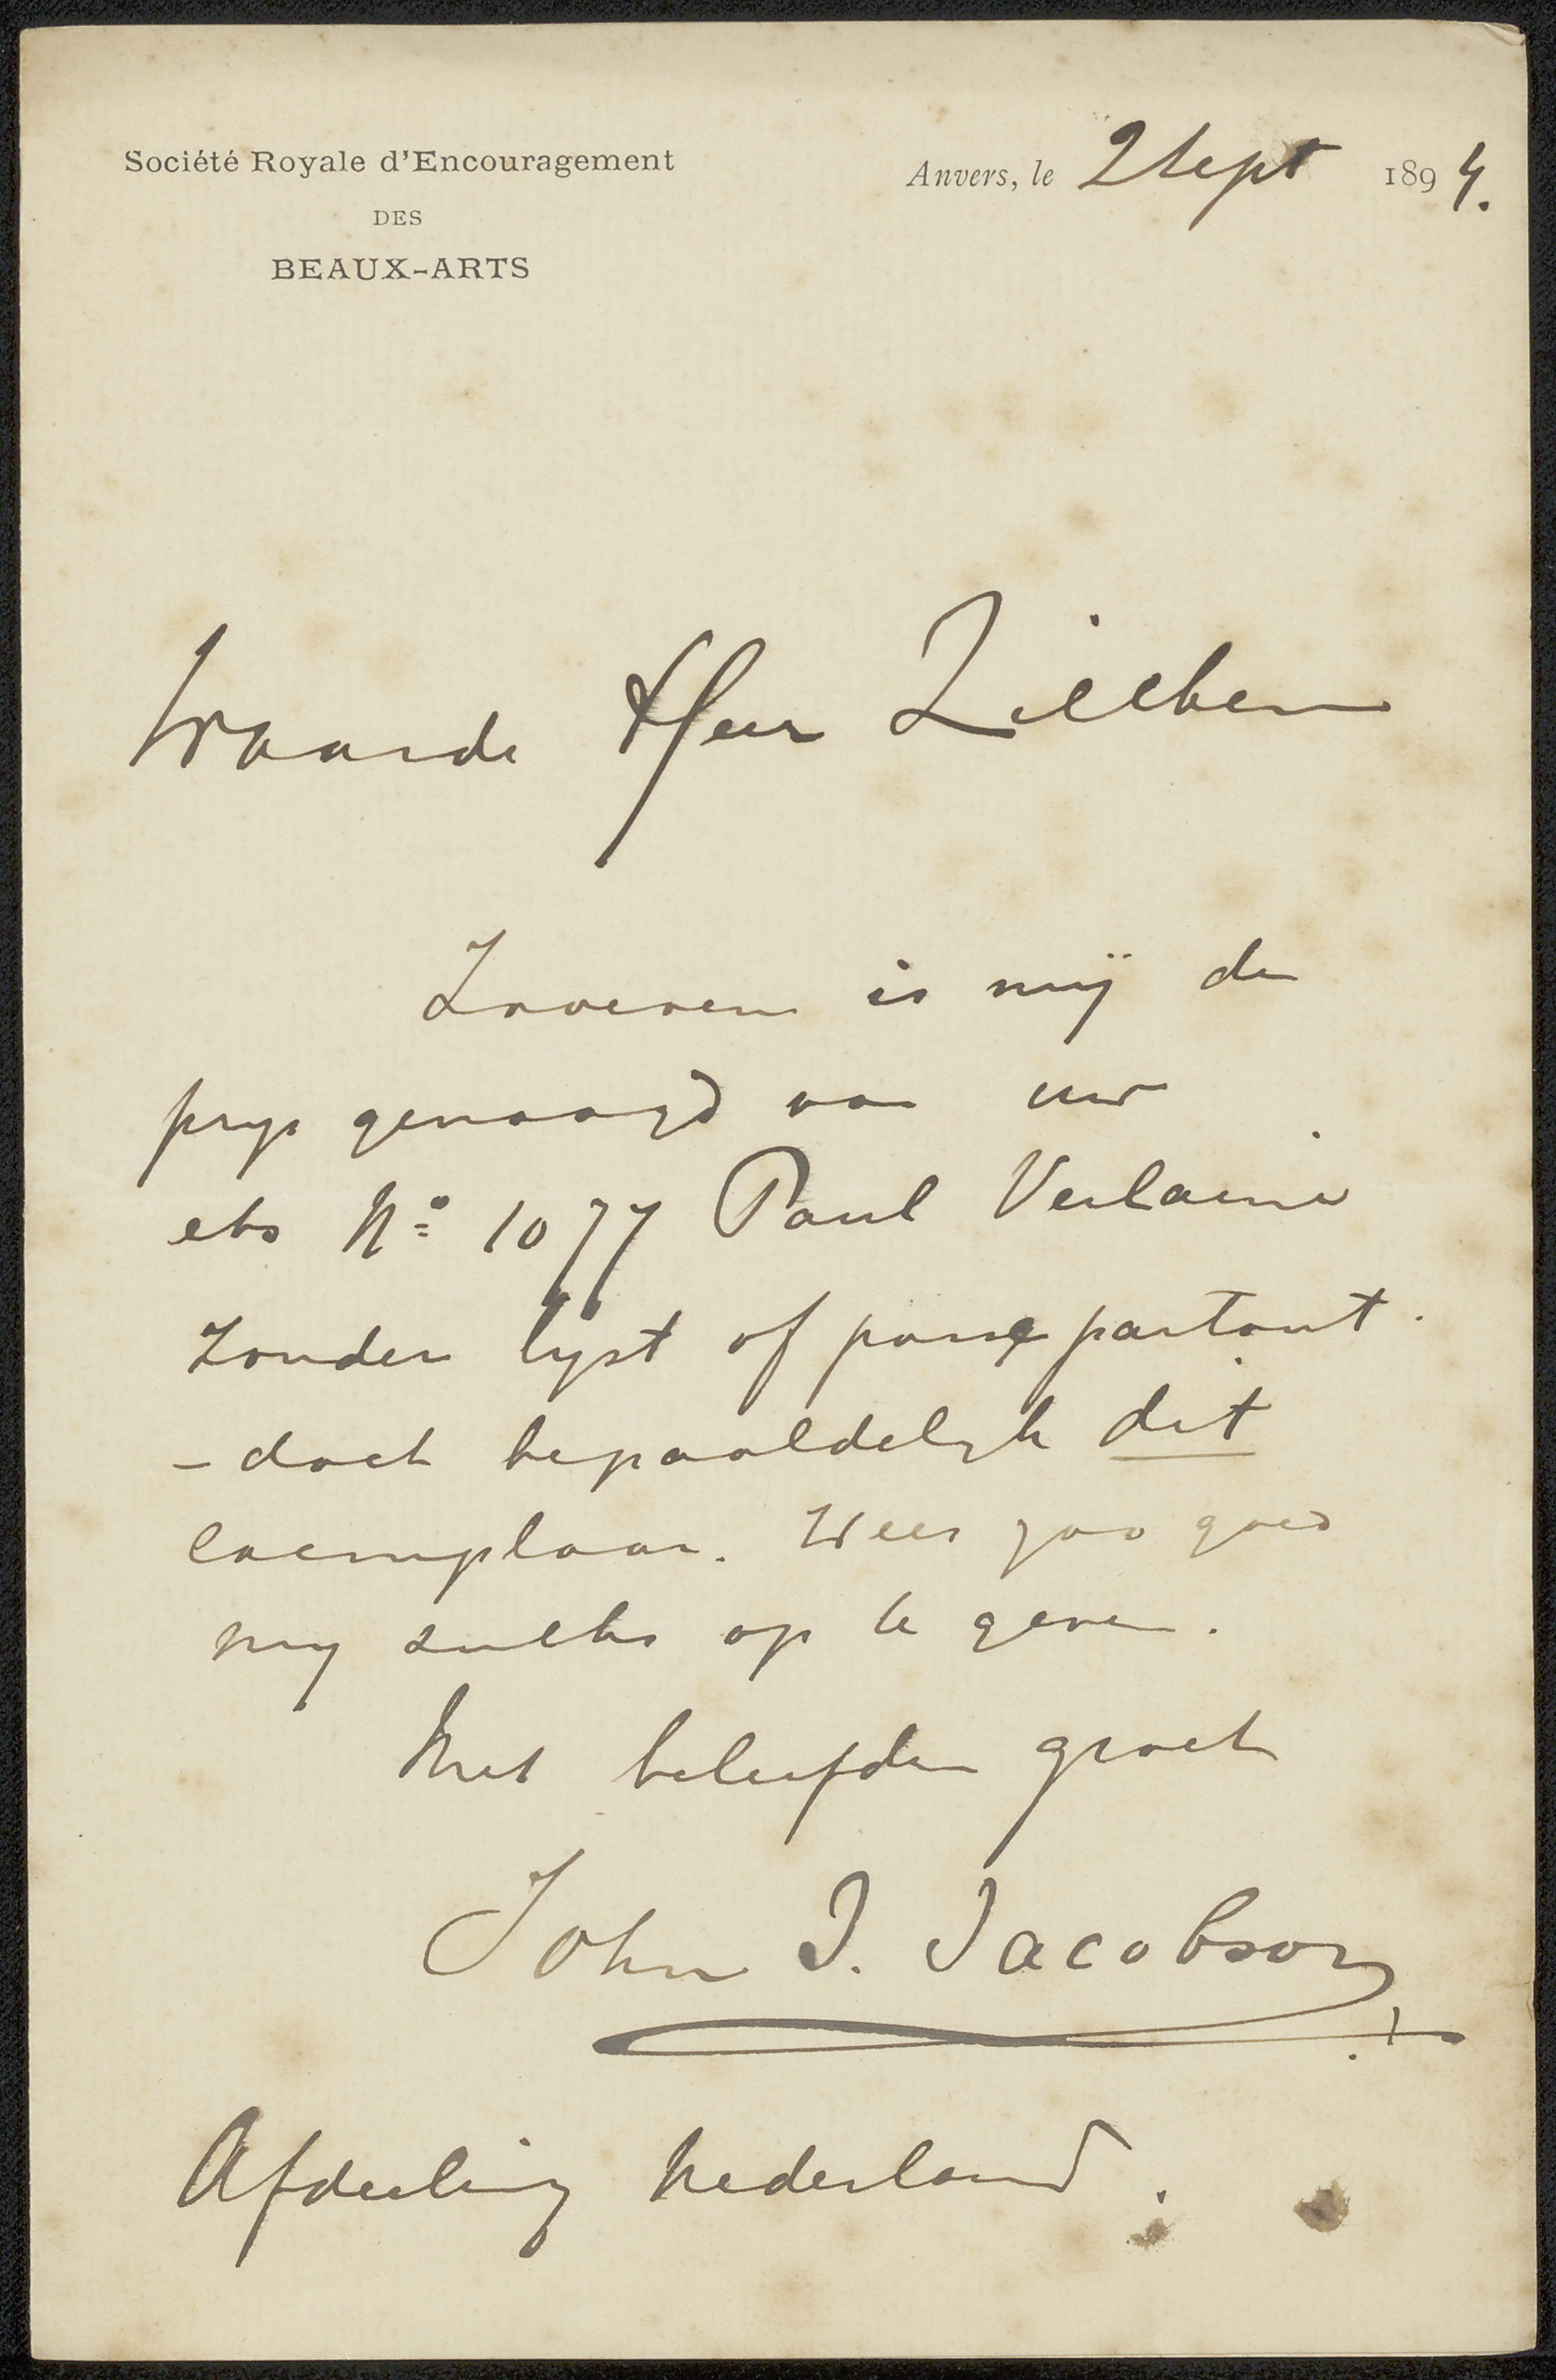 Société Royale d'Encouragement
DES
BEAUX-ARTS
Anvers, le 2 Sept 1894.
Waarde Heer Zilcken
Zooeven is mij de
prijs gevraagd van uw
ets No 1077 Paul Verlaine
zonder lijst of passe partout.
- doch bepaaldelijk dit
exemplaar. Wees zoo goed
mij zulks op te geven.
Met beleefden groet
John J. Jacobson
Afdeeling Nederland.